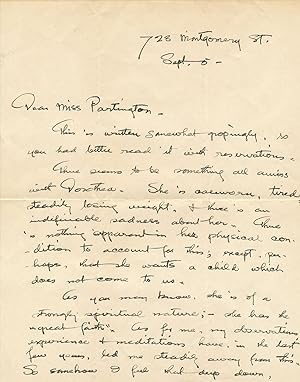 728 Montgomery St.
Sept. 5 -
Dear Miss Partington -
This is written somewhat gropingly, so
you had better read it with reservations.
There seems to be something all amiss
with Dorothea. She is careworn, tired,
steadily losing weight, & there's an
indefinable sadness about her. There
is nothing apparent in her physical con-
dition to account for this, except, per-
haps, that she wants a child which
does not come to us.
As you may know, she is of a
strongly spiritual nature; - she has the
"great faith". As for me, my observations
experience & meditations have, in the last
few years, led me steadily away from this.
So somehow I feel that deep down,